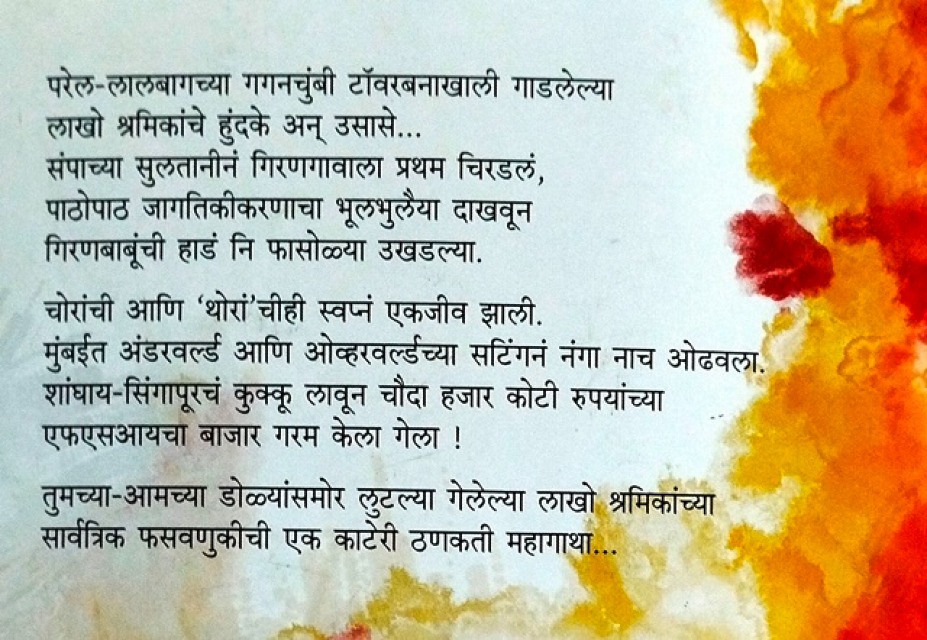 परेल-लालबागच्या गगनचुंबी टॉवरबनाखाली गाडलेल्या
लाखो श्रमिकांचे हुंदके अन् उसासे...
संपाच्या सुलतानीनं गिरणगावाला प्रथम चिरडलं,
पाठोपाठ जागतिकीकरणाचा भूलभुलैया दाखवून
गिरणबाबूंची हाडं नि फासोळ्या उखडल्या.
चोरांची आणि ‘थोरां’चीही स्वप्नं एकजीव झाली.
मुंबईत अंडरवर्ल्ड आणि ओव्हरवर्ल्डच्या सटिंगनं नंगा नाच ओढवला.
शांघाय-सिंगापूरचं कुक्कू लावून चौदा हजार कोटी रुपयांच्या
एफएसआयचा बाजार गरम केला गेला !
तुमच्या-आमच्या डोळ्यांसमोर लुटल्या गेलेल्या लाखो श्रमिकांच्या
सार्वत्रिक फसवणुकीची एक काटेरी ठणकती महागाथा...